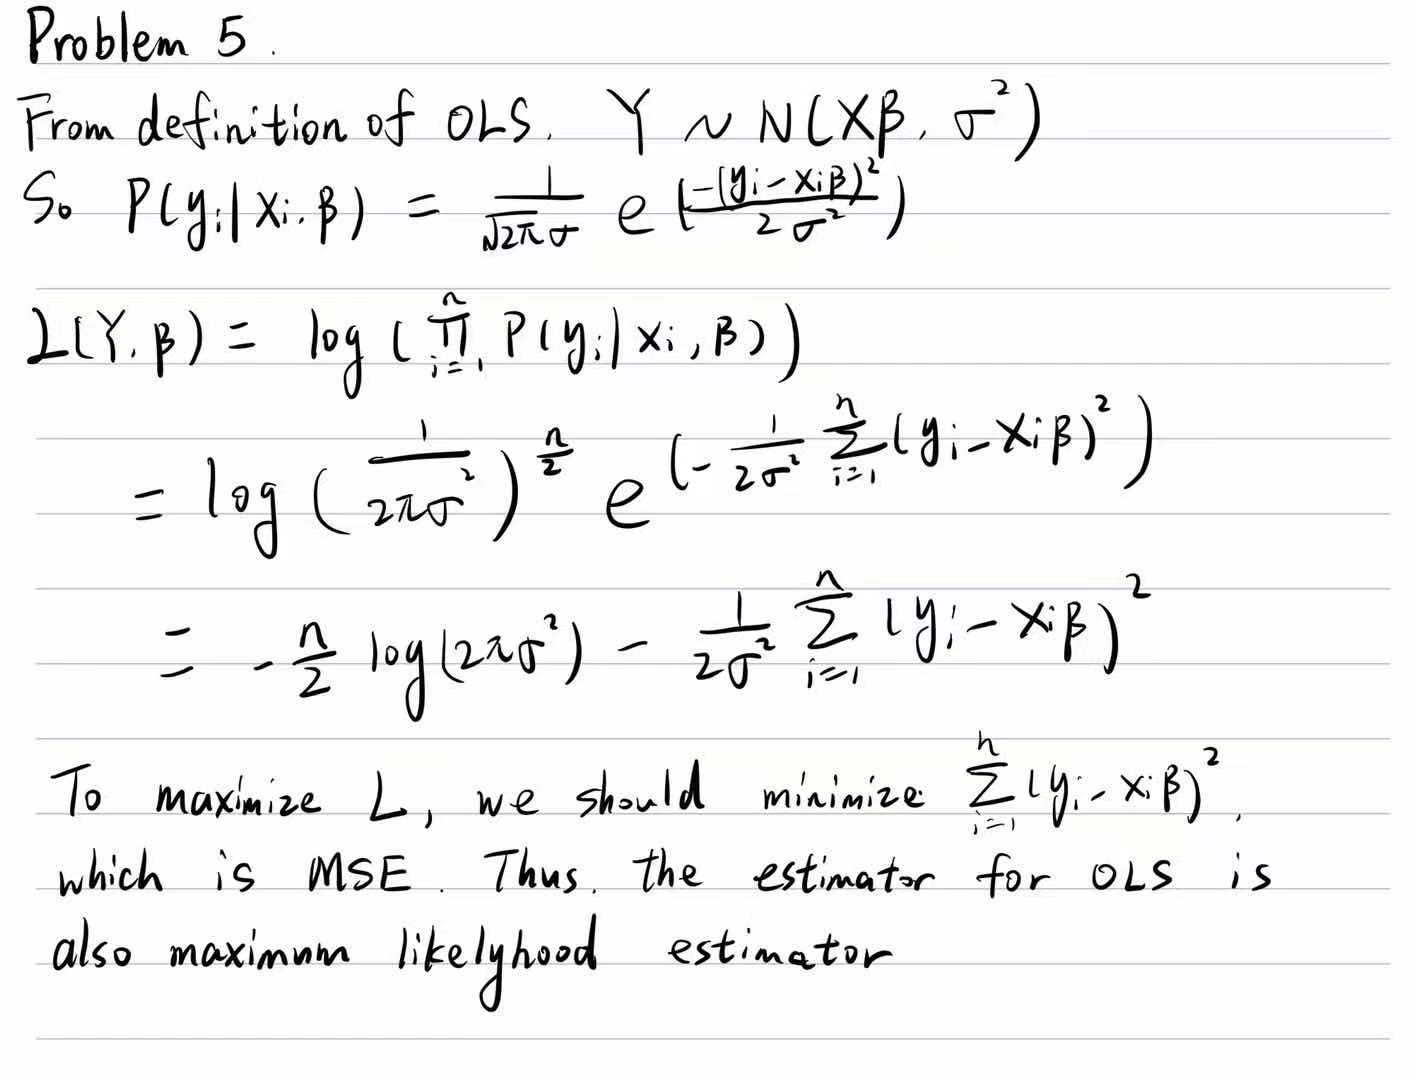 Problem 5.
From definition of OLS. Y ~ N(Xβ, σ²)
So P(yᵢ|xᵢ.β) = 1/(√2π σ) e^(-(yᵢ-xᵢβ)²/(2σ²))
L(Y.β) = log(∏ᵢ₌₁ⁿ P(yᵢ|xᵢ,β))
= log(1/(2πσ²))^(n/2) e^(-1/(2σ²) ∑ᵢ₌₁ⁿ(yᵢ-xᵢβ)²)
= -n/2 log(2πσ²) - 1/(2σ²) ∑ᵢ₌₁ⁿ(yᵢ-xᵢβ)²
To maximize L, we should minimize ∑ᵢ₌₁ⁿ(yᵢ-xᵢβ)²,
which is MSE. Thus, the estimator for OLS is
also maximum likelyhood estimator